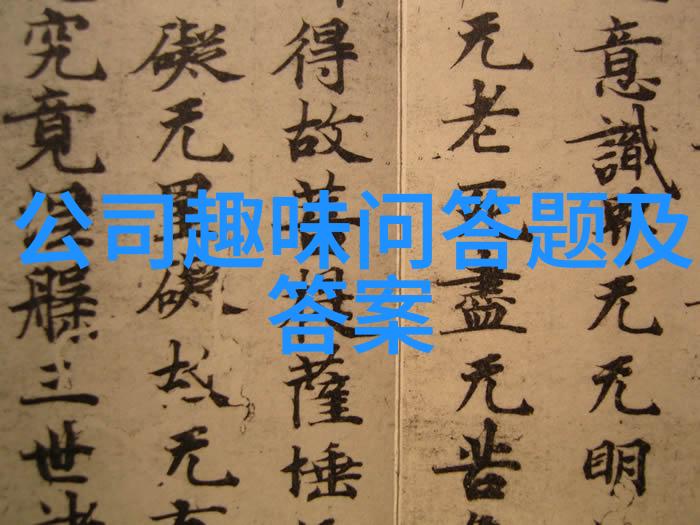 公司趣味问答题及
答案
意識界无无明
无老死盡无苦
得故菩提薩埵
礙无罣礙故无
究竟涅槃三世諸